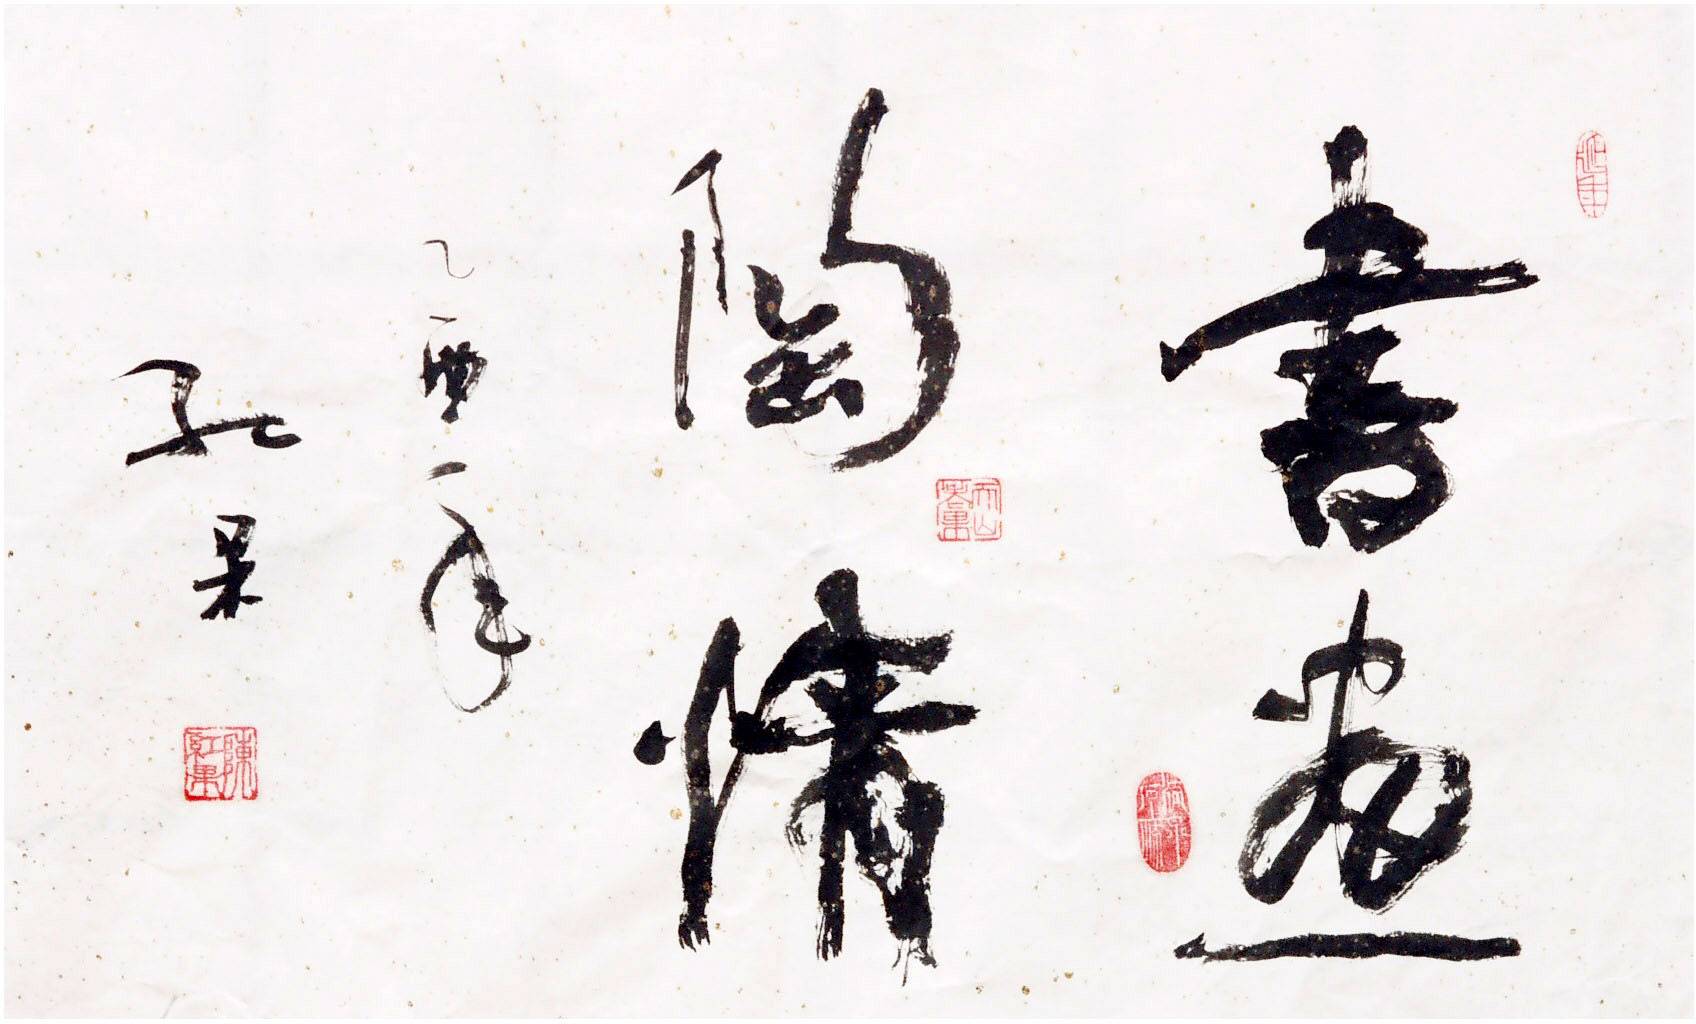 書畫
陶情
乙酉年
紅果
陳紅果